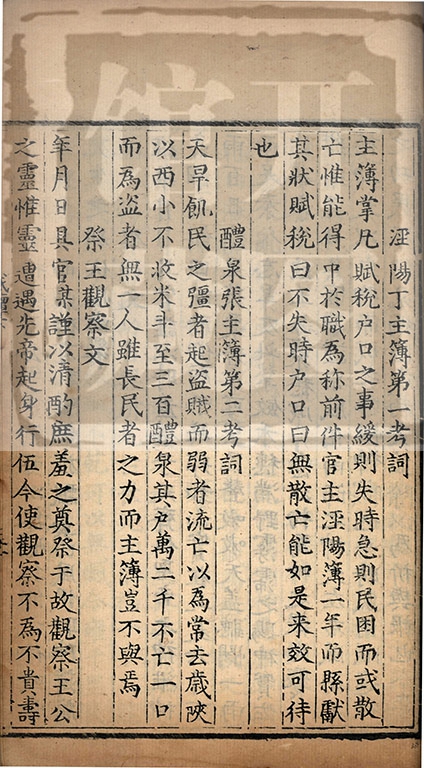 涇陽丁主簿第一考詞
主簿掌凡賦稅户口之事緩則失時急則民困而或散
亡惟能得中於職爲称前件官主涇陽簿一年而縣獻
其狀賦稅曰不失時户口曰無散亡能如是来效可待
也
醴泉張主簿第二考詞
天旱飢民之彊者起盜賊而弱者流亡以爲常去歲陜
以西小不收米斗至三百醴泉其户萬二千不亡一口
而爲盜者無一人雖長民者之力而主簿豈不與焉
祭王觀察文
年月日具官某謹以清酌庶羞之奠祭于故觀察王公
之靈惟靈遭遇先帝起身行伍今使觀察不爲不貴壽